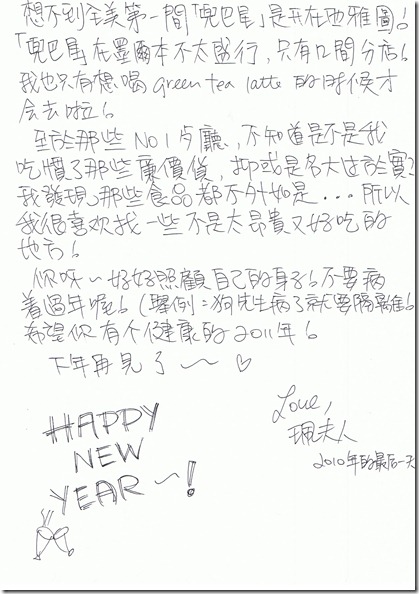 想不到全美第一間「兜巴星」是開在西雅圖!
「兜巴星」在墨爾本不太盛行,只有几間分店!
我也只有想喝 green tea latte 的時候才
会去啦!
至於那些 No 1 歺廳,不知道是不是我
吃慣了那些廉價貨,抑或是名大过於實?
我發現那些食品都不外如是...所以
我很喜欢找一些不是太昂貴又好吃的
地方!
你呀~好好照顧自己的身子!不要病
着過年喔!(舉例:狗先生病了就要隔離!)
希望你有个健康的2011年!
下年再見了~~ ♡
Love,
珮夫人
2010年的最后一天
HAPPY
NEW
YEAR~!